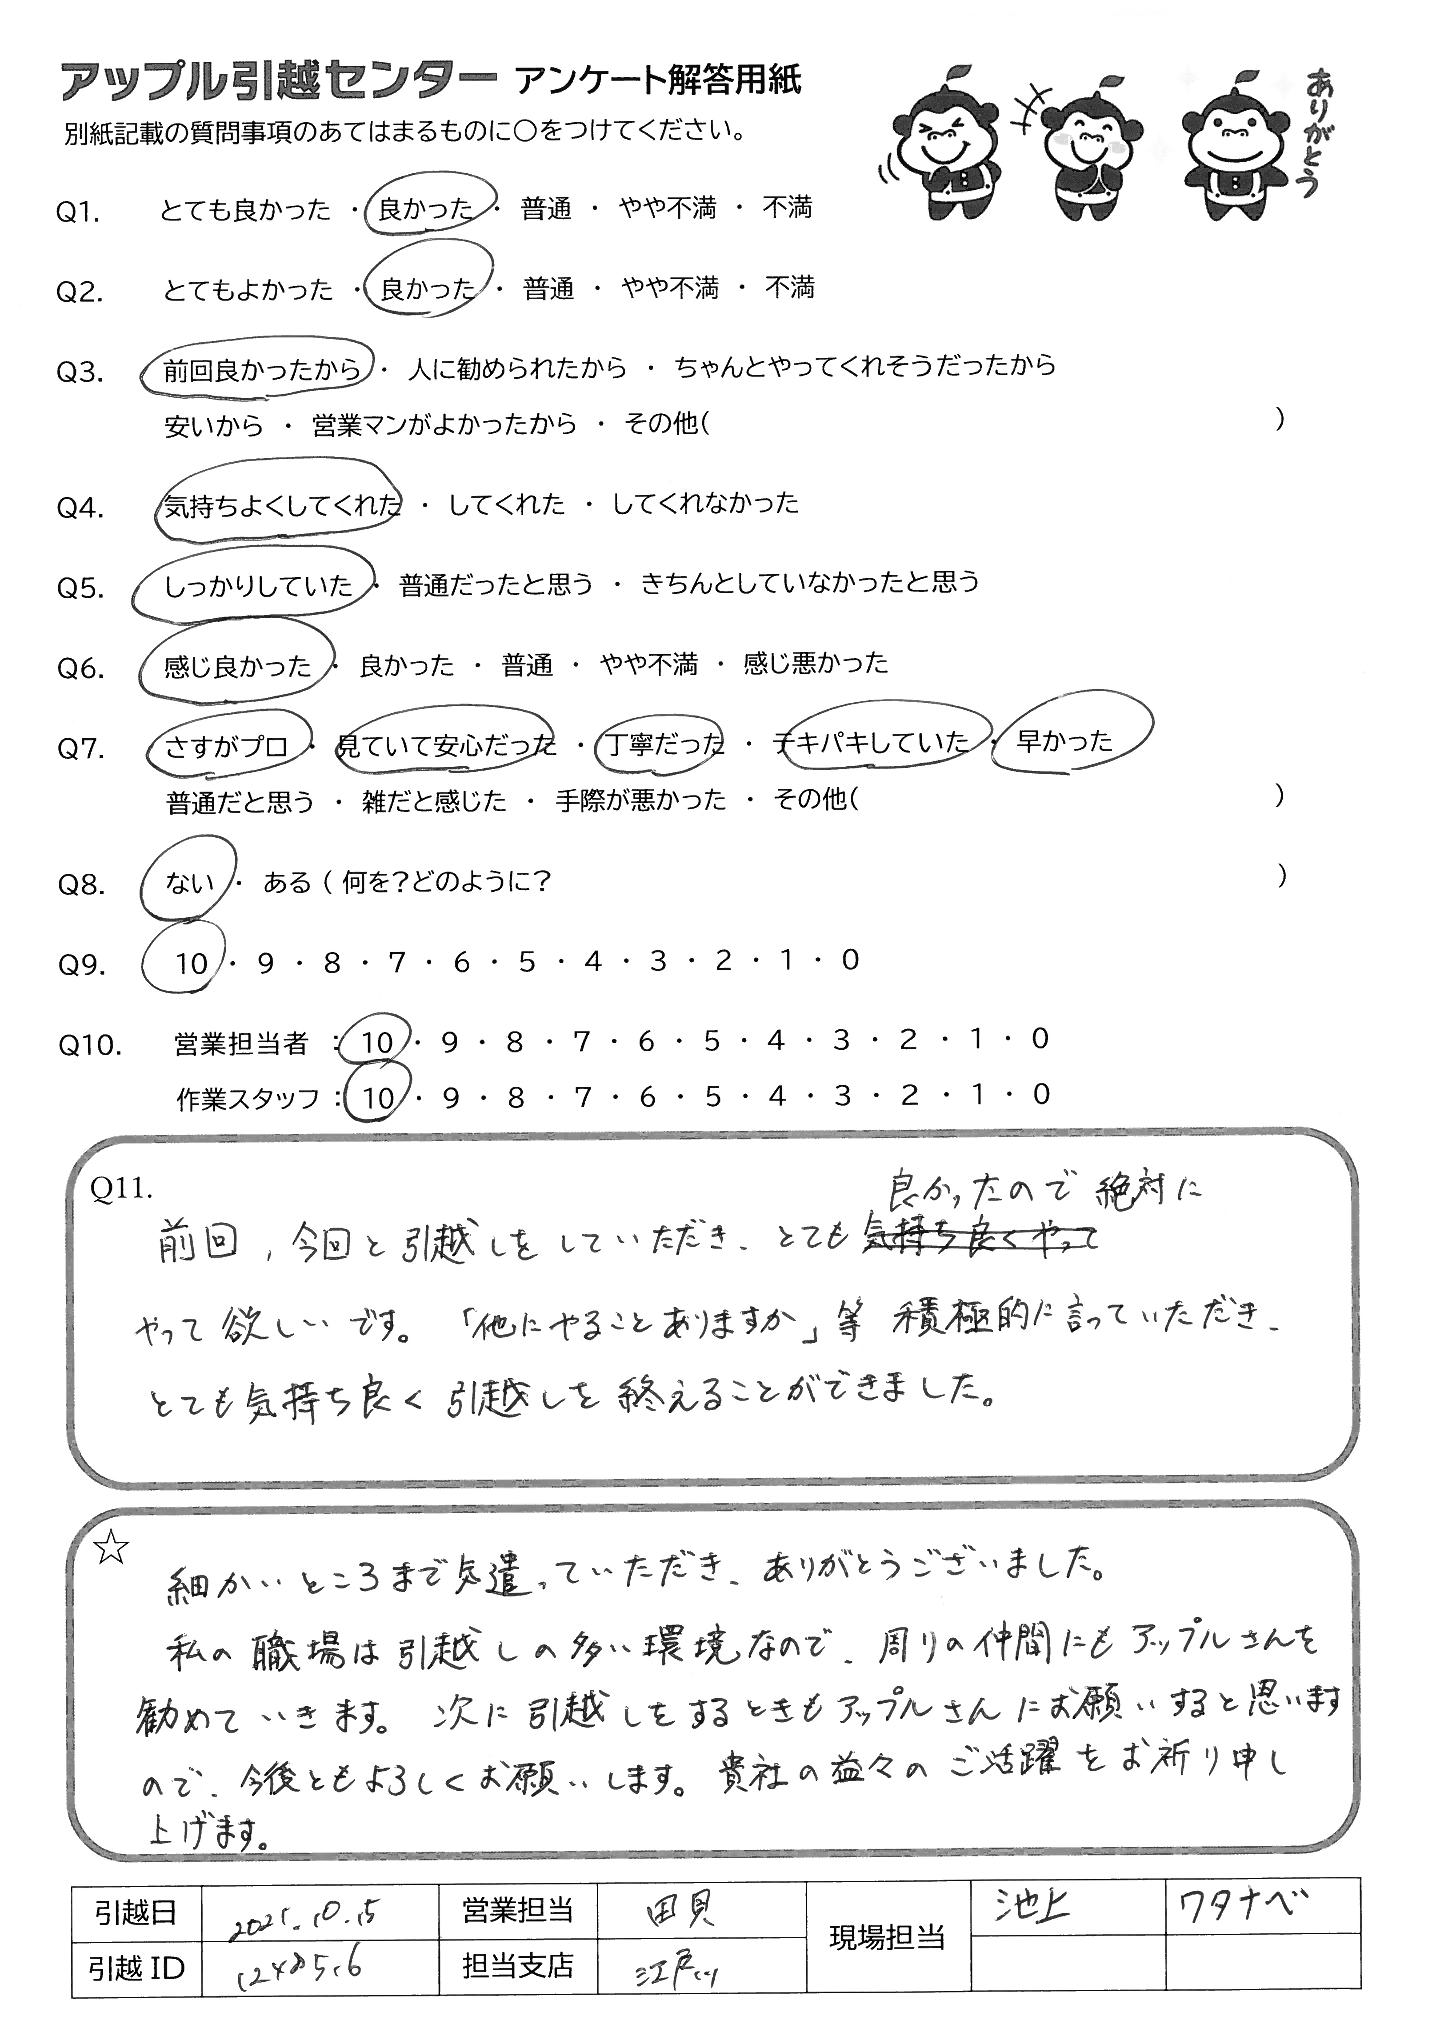 アップル引越センター アンケート解答用紙
別紙記載の質問事項のあてはまるものに○をつけてください。
ありがとう
Q1. とても良かった ・ 良かった ・ 普通 ・ やや不満 ・ 不満
Q2. とてもよかった ・ 良かった ・ 普通 ・ やや不満 ・ 不満
Q3. 前回良かったから ・ 人に勧められたから ・ ちゃんとやってくれそうだったから
安いから ・ 営業マンがよかったから ・ その他( )
Q4. 気持ちよくしてくれた ・ してくれた ・ してくれなかった
Q5. しっかりしていた ・ 普通だったと思う ・ きちんとしていなかったと思う
Q6. 感じ良かった ・ 良かった ・ 普通 ・ やや不満 ・ 感じ悪かった
Q7. さすがプロ ・ 見ていて安心だった ・ 丁寧だった ・ テキパキしていた ・ 早かった
普通だと思う ・ 雑だと感じた ・ 手際が悪かった ・ その他( )
Q8. ない ・ ある ( 何を?どのように? )
Q9. 10 ・ 9 ・ 8 ・ 7 ・ 6 ・ 5 ・ 4 ・ 3 ・ 2 ・ 1 ・ 0
Q10. 営業担当者 : 10 ・ 9 ・ 8 ・ 7 ・ 6 ・ 5 ・ 4 ・ 3 ・ 2 ・ 1 ・ 0
作業スタッフ : 10 ・ 9 ・ 8 ・ 7 ・ 6 ・ 5 ・ 4 ・ 3 ・ 2 ・ 1 ・ 0
Q11.
良かったので 絶対に
前回、今回と引越しをしていただき、とても気持ち良くやって
やって欲しいです。「他にやることありますか」等 積極的に言っていただき、
とても気持ち良く引越しを終えることができました。
☆
細かいところまで気遣っていただき、ありがとうございました。
私の職場は引越しの多い環境なので、周りの仲間にもアップルさんを
勧めていきます。次に引越しをするときもアップルさんにお願いすると思います
ので、今後ともよろしくお願いします。貴社の益々のご活躍をお祈り申し
上げます。
引越日 2025.10.15 営業担当 田貝 現場担当 池上 ワタナベ
引越ID 担当支店 江戸川